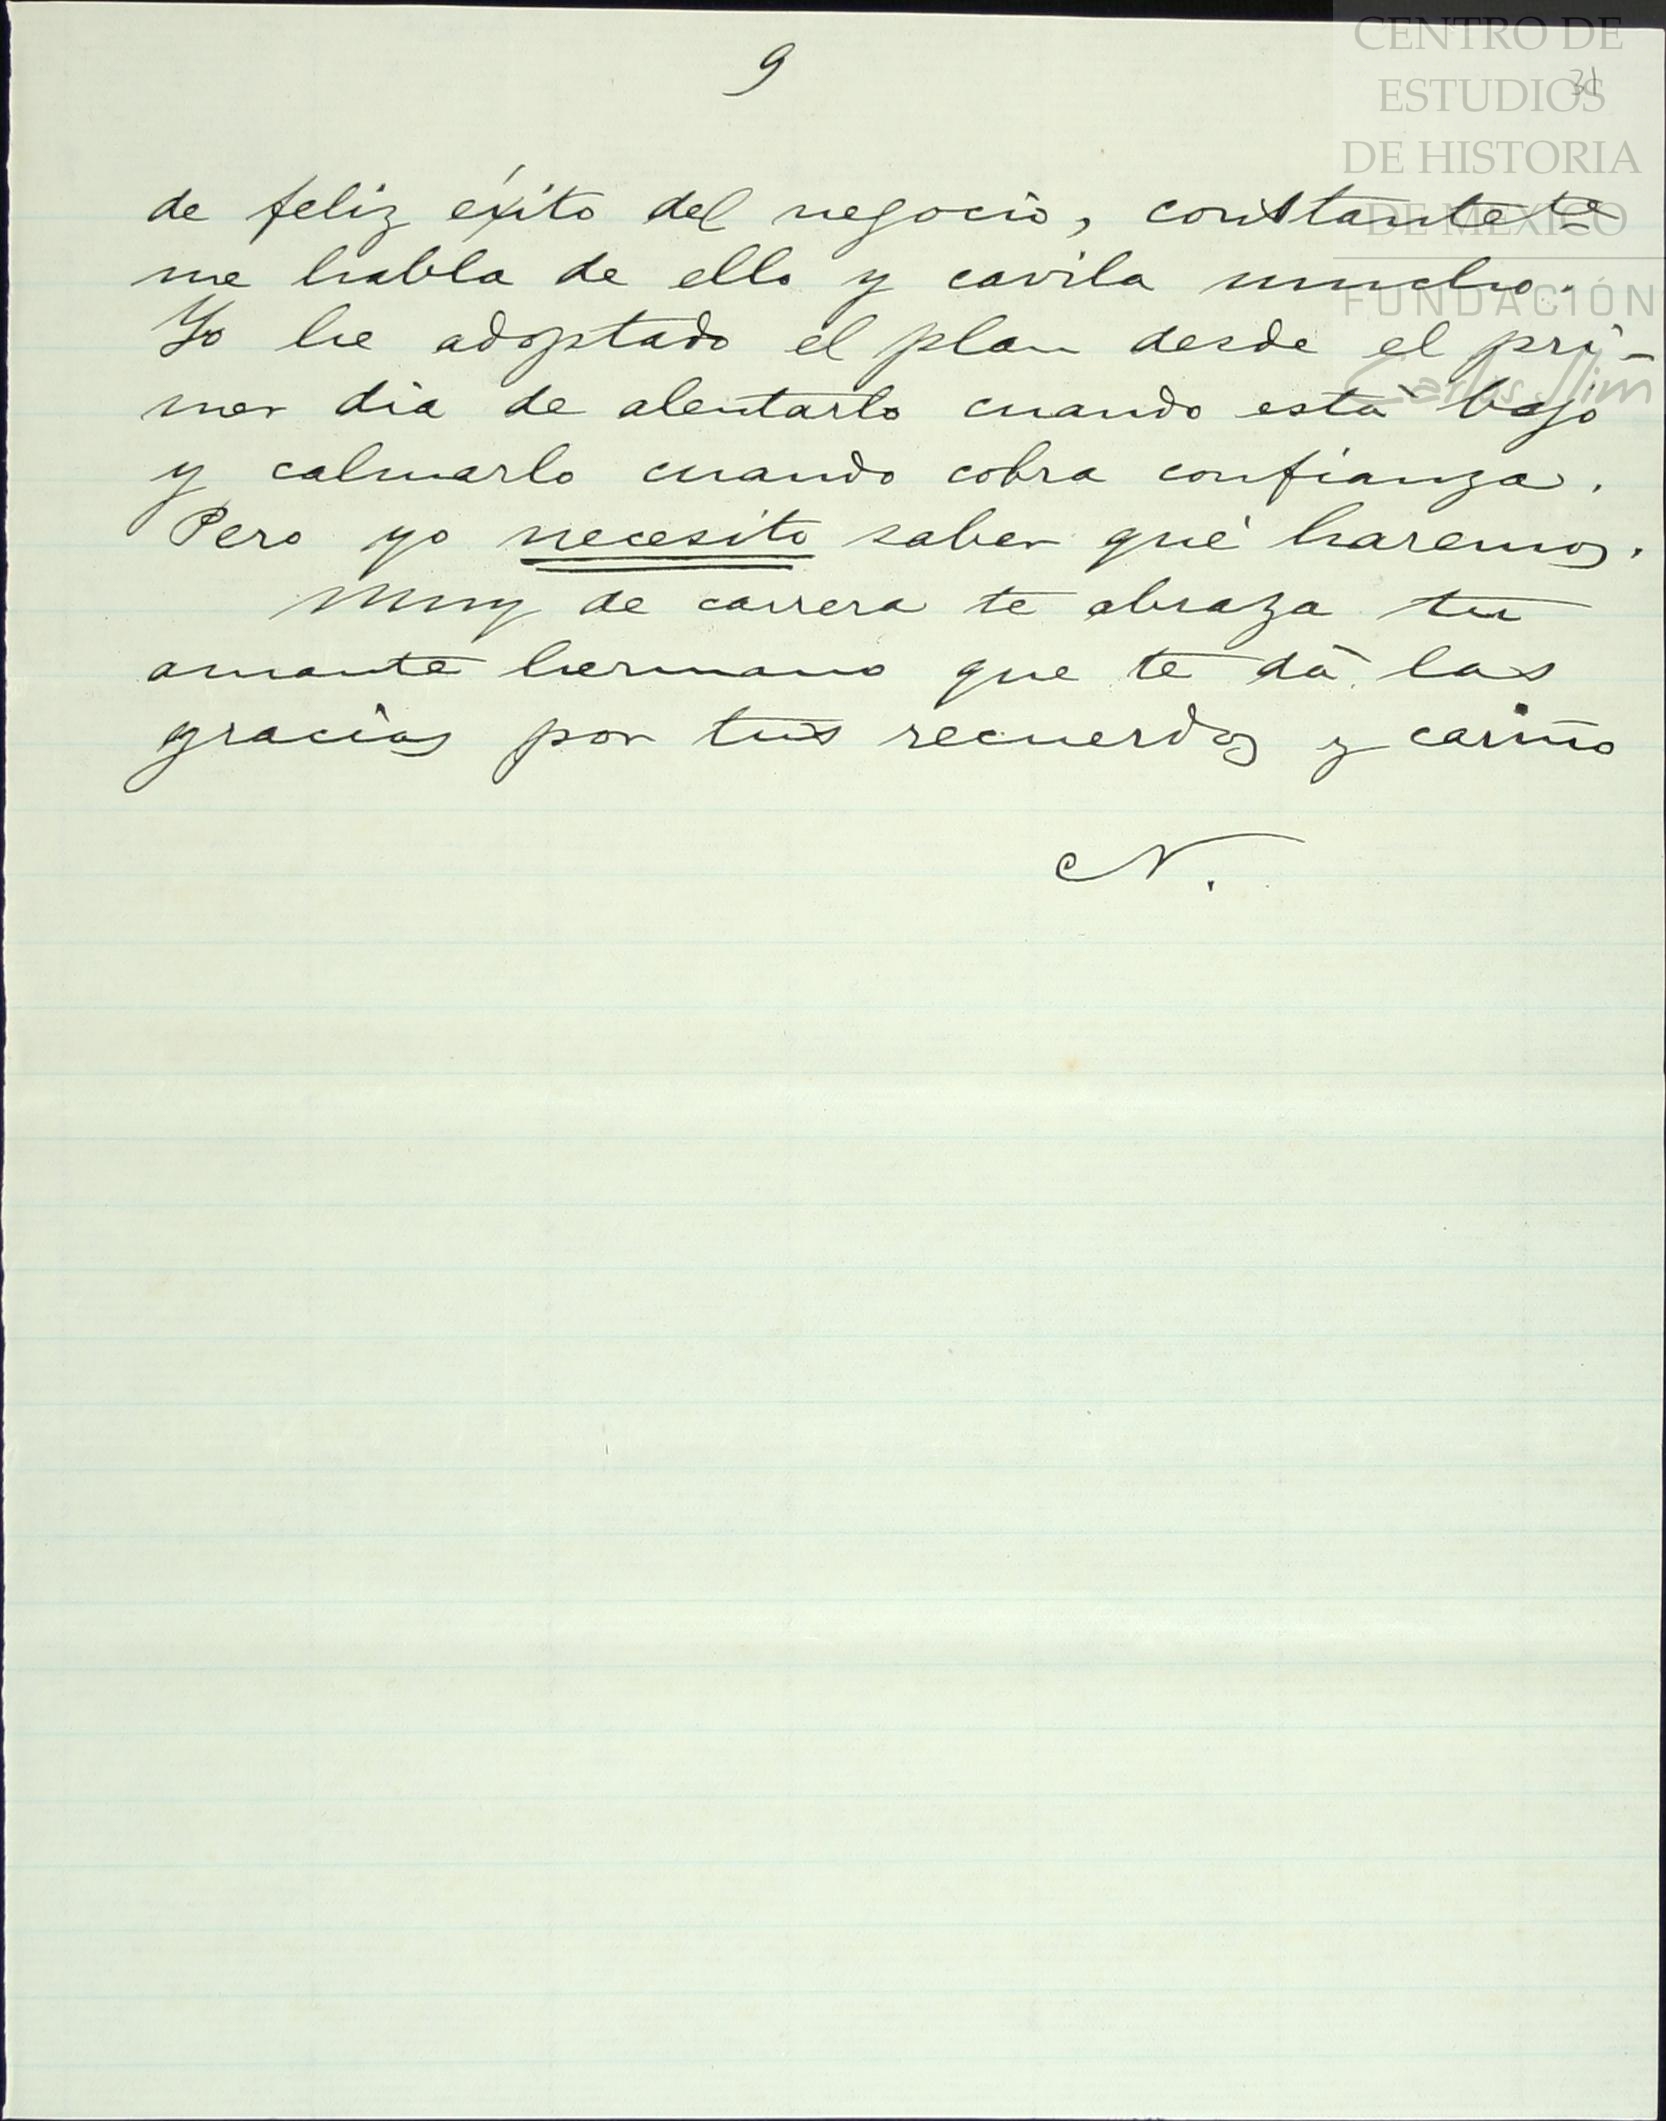 9
31
CENTRO DE
ESTUDIOS
DE HISTORIA
DE MÉXICO
FUNDACIÓN
Carlos Slim
de feliz éxito del negocio, constantete
me habla de ello y cavila mucho.
Yo he adoptado el plan desde el pri-
mer dia de alentarlo cuando está bajo
y calmarlo cuando cobra confianza.
Pero yo necesito saber qué haremos.
Muy de carrera te abraza tu
amante hermano que te dá las
gracias por tus recuerdos y cariño
N.